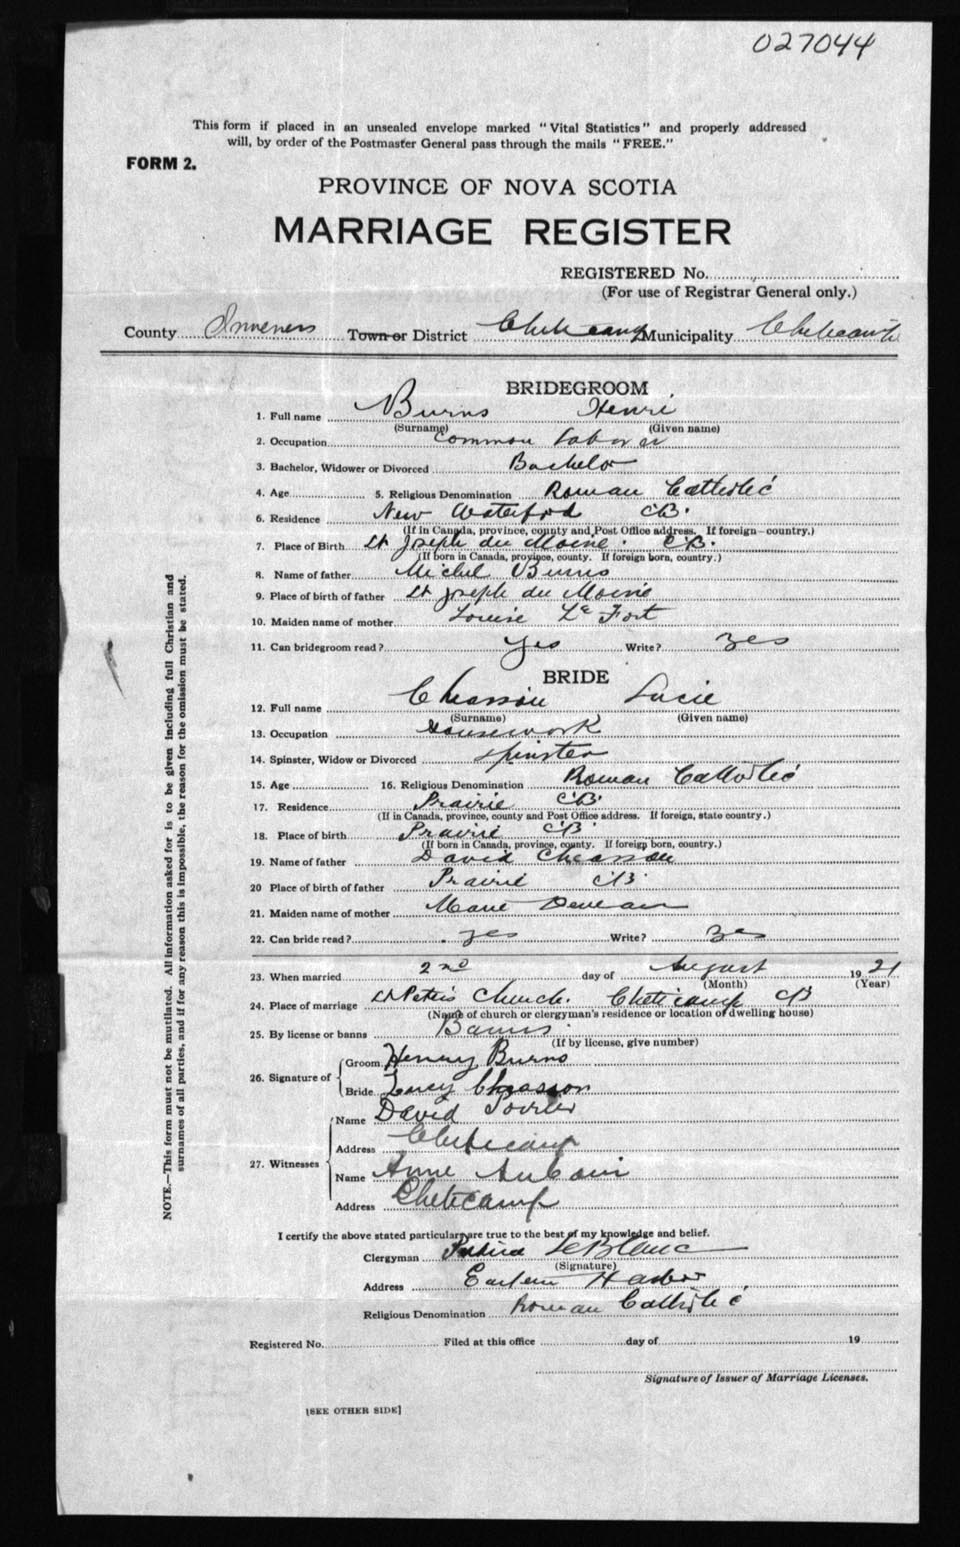 027044
This form if placed in an unsealed envelope marked "Vital Statistics" and properly addressed
will, by order of the Postmaster General pass through the mails "FREE."
FORM 2.
PROVINCE OF NOVA SCOTIA
MARRIAGE REGISTER
REGISTERED No.
(For use of Registrar General only.)
County Inverness Town or District Cheticamp Municipality Cheticamp
BRIDEGROOM
1. Full name Burns Henri
(Surname) (Given name)
2. Occupation Common Laborer
3. Bachelor, Widower or Divorced Bachelor
4. Age 5. Religious Denomination Roman Catholic
6. Residence New Waterford CB.
(If in Canada, province, county and Post Office address. If foreign—country.)
7. Place of Birth St Joseph du Moine. CB.
(If born in Canada, province, county. If foreign born, country.)
8. Name of father Michel Burns
9. Place of birth of father St Joseph du Moine
10. Maiden name of mother Louise Le Fort
11. Can bridegroom read? Yes Write? Yes
BRIDE
12. Full name Chiasson Lucie
(Surname) (Given name)
13. Occupation Housework
14. Spinster, Widow or Divorced Spinster
15. Age 16. Religious Denomination Roman Catholic
17. Residence Prairie CB.
(If in Canada, province, county and Post Office address. If foreign, state country.)
18. Place of birth Prairie CB.
(If born in Canada, province, county. If foreign born, country.)
19. Name of father David Chiasson
20 Place of birth of father Prairie CB.
21. Maiden name of mother Marie Deveau
22. Can bride read? Yes Write? Yes
23. When married 2nd day of August 1921
(Month) (Year)
24. Place of marriage St Peters Church. Cheticamp CB
(Name of church or clergyman's residence or location of dwelling house)
25. By license or banns Banns.
(If by license, give number)
26. Signature of Groom Henry Burns
Bride Lucy Chiasson
27. Witnesses Name David Poirier
Address Cheticamp
Name Anne AuCoin
Address Cheticamp
I certify the above stated particulars are true to the best of my knowledge and belief.
Clergyman LeBlanc
(Signature)
Address Eastern Harbor
Religious Denomination Roman Catholic
Registered No. Filed at this office day of 19
Signature of Issuer of Marriage Licenses.
[SEE OTHER SIDE]
NOTE.—This form must not be mutilated. All information asked for is to be given including full Christian and
surnames of all parties, and if for any reason this is impossible, the reason for the omission must be stated.